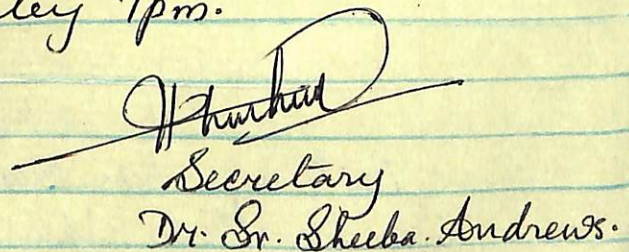 7pm.
Secretary
Dr. Sr. Sheeba. Andrews.